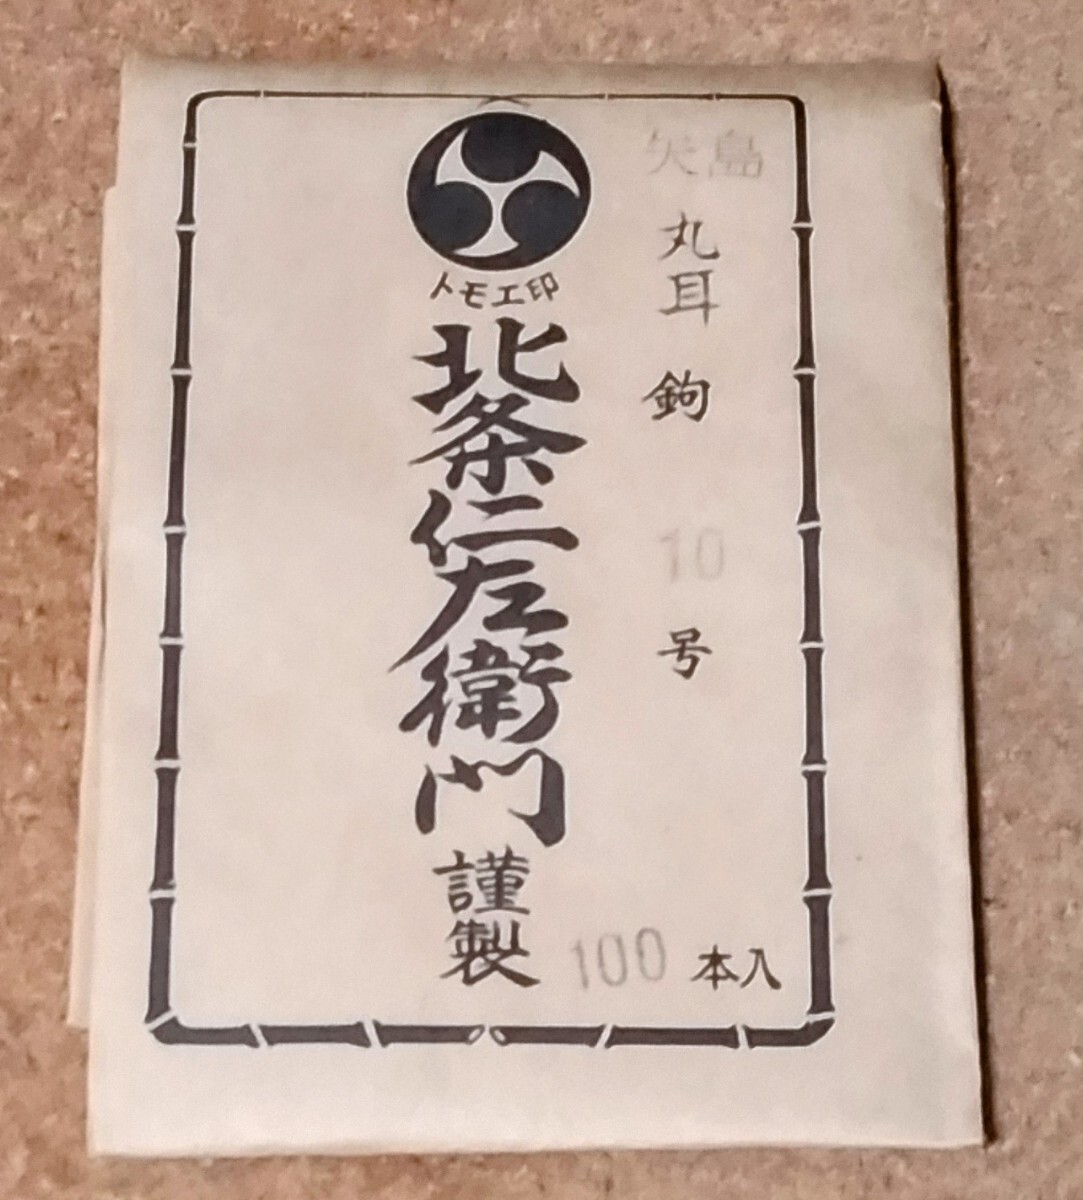 矢島
丸耳鉤 10号
トモエ印
北条仁左衛門謹製
100本入